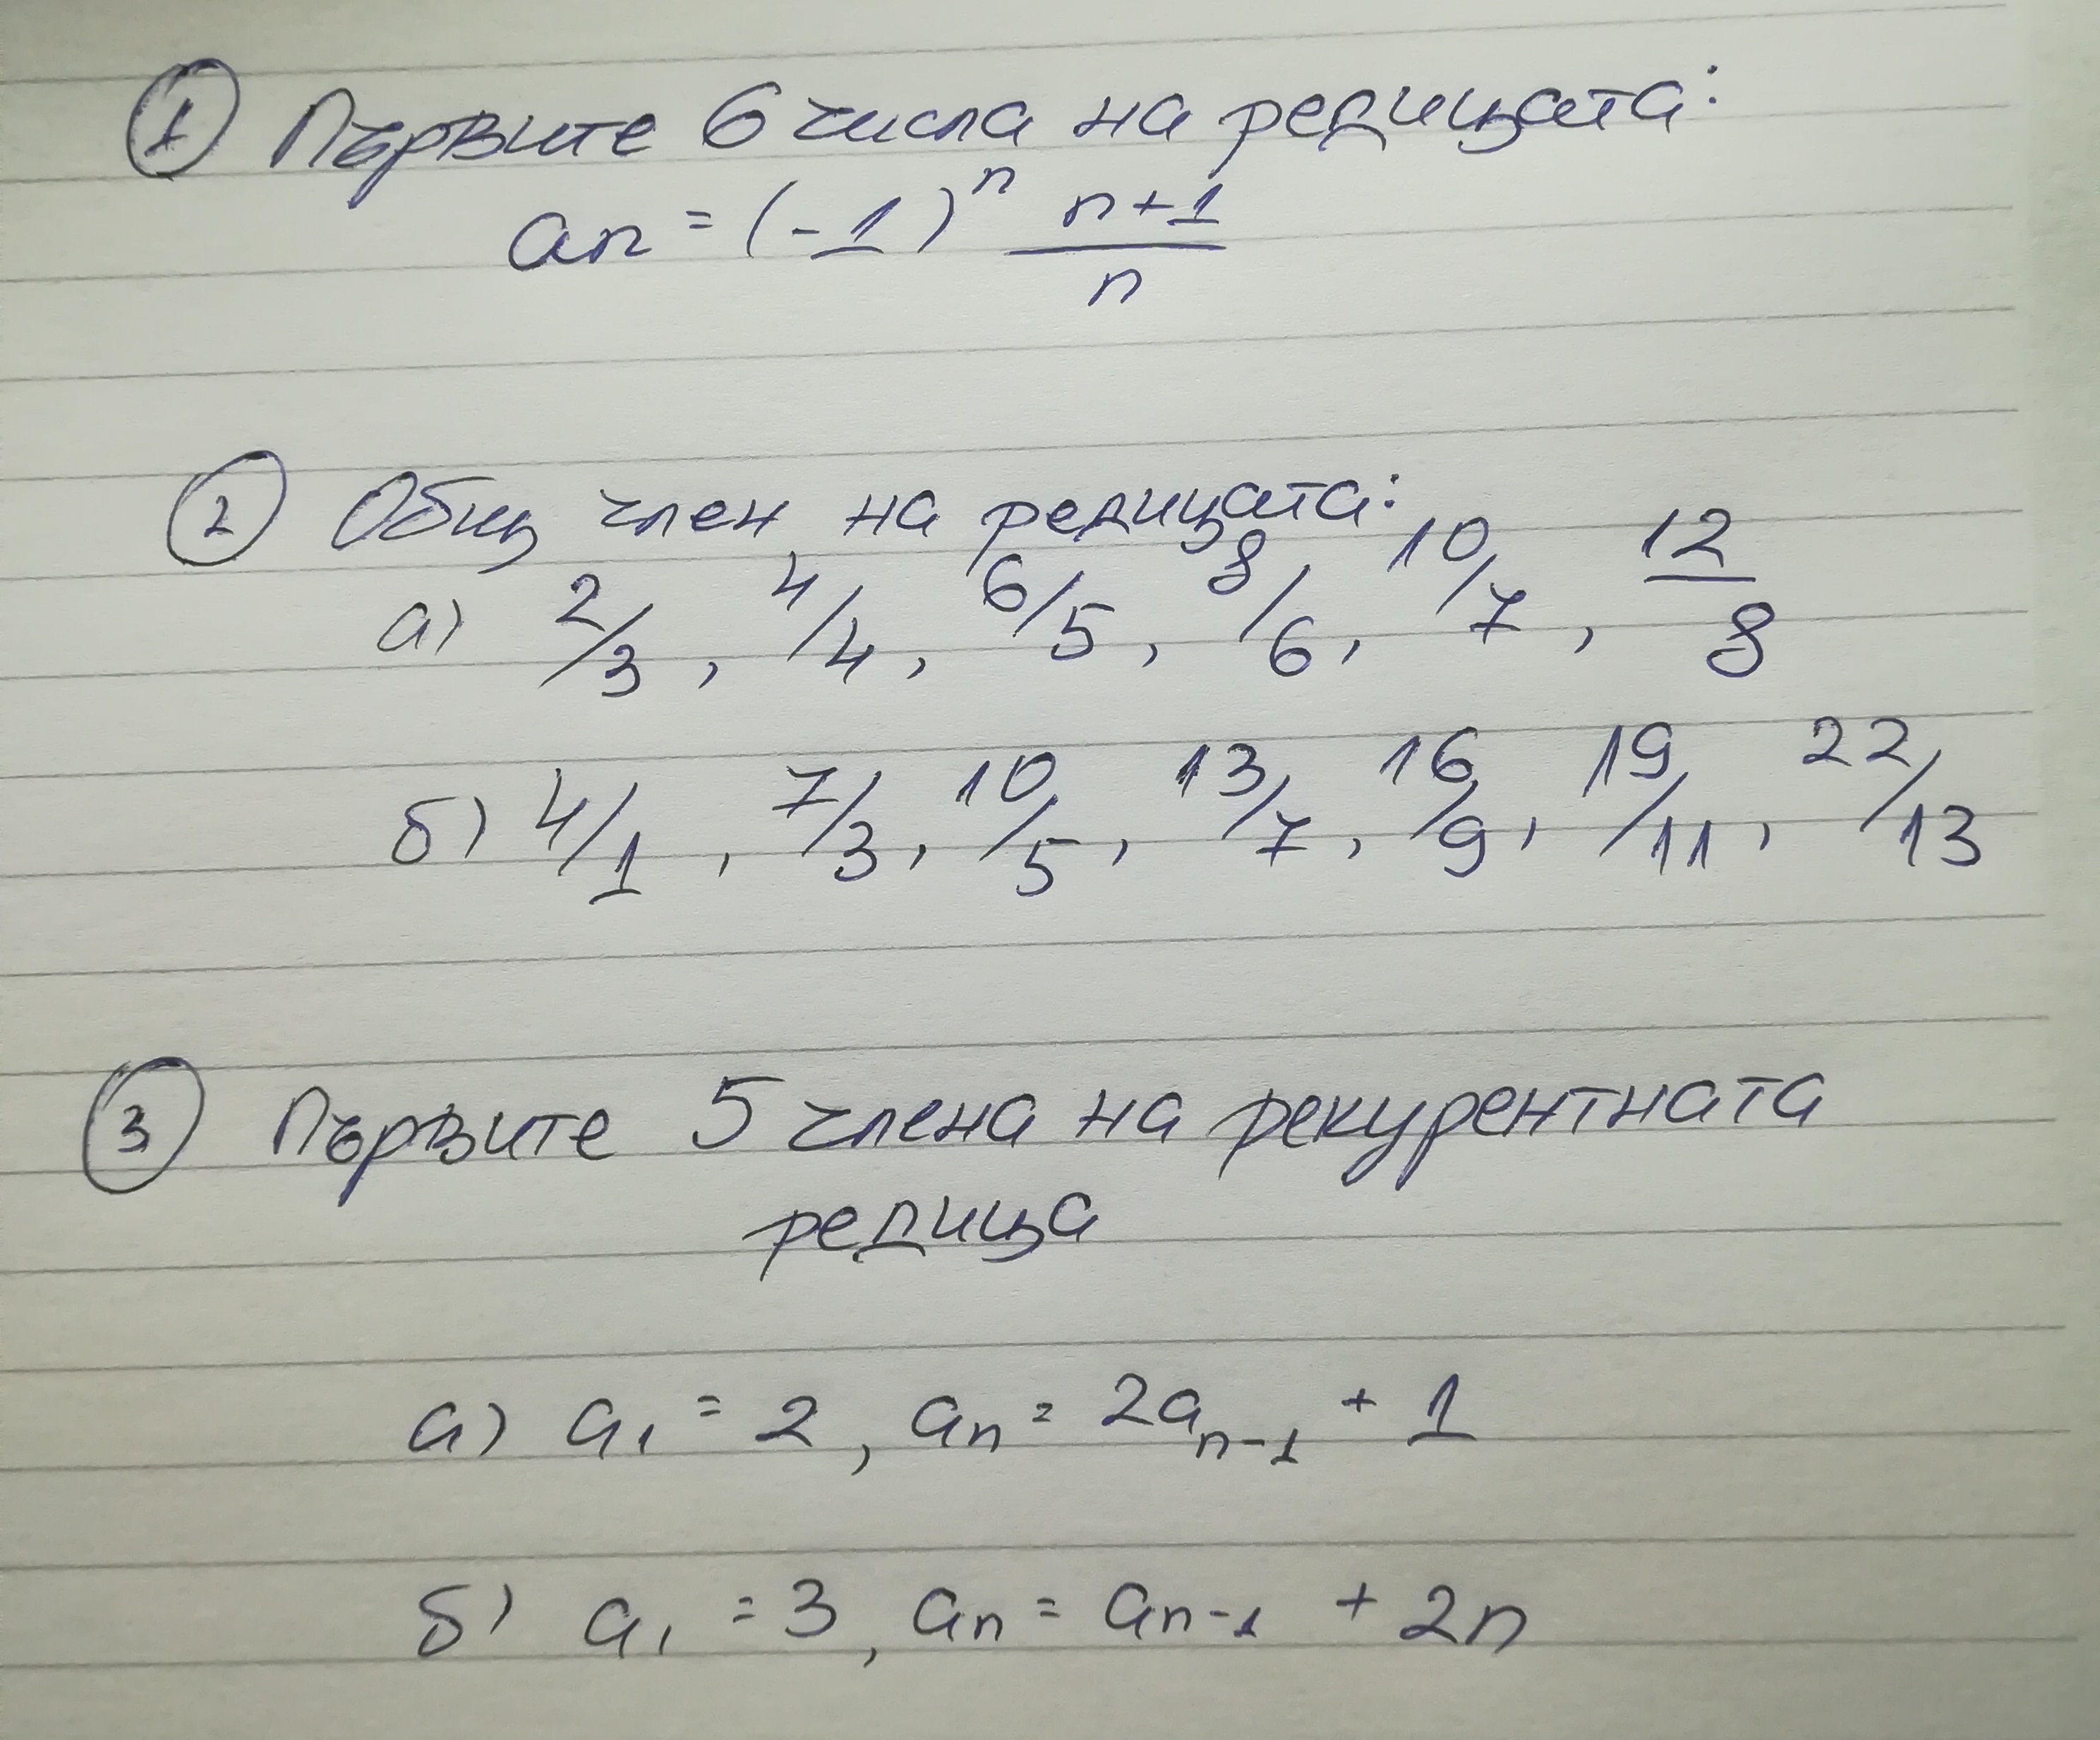 1 Първите 6 числа на редицата:
an = (-1)^n (n+1)/n
2 Общ член на редицата:
а) 2/3, 4/4, 6/5, 8/6, 10/7, 12/8
б) 4/1, 7/3, 10/5, 13/7, 16/9, 19/11, 22/13
3 Първите 5 члена на рекурентната
редица
а) a₁ = 2, aₙ = 2aₙ₋₁ + 1
б) a₁ = 3, aₙ = aₙ₋₁ + 2n